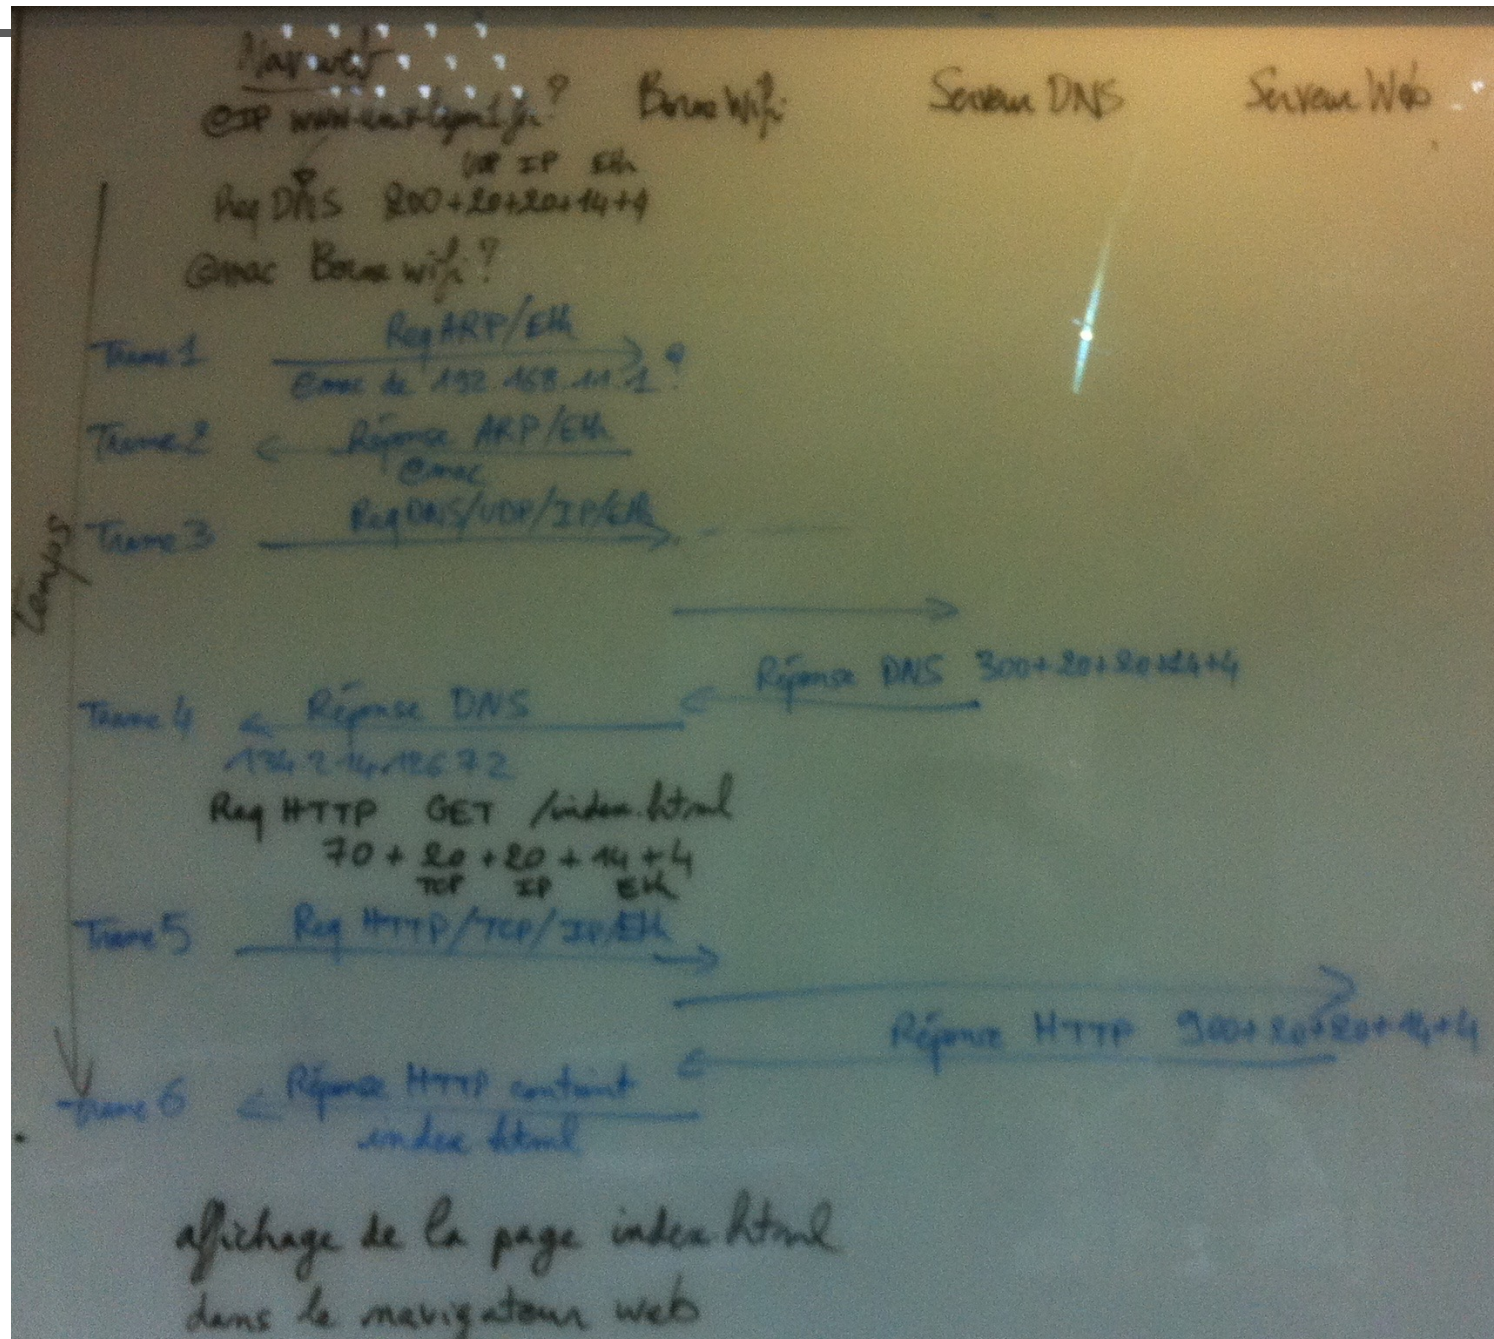 Nav web
Borne Wifi
Serveur DNS
Serveur Web
@IP www.univ-lyon1.fr ?
UDP IP Eth
Req DNS 200+20+20+14+4
@mac Borne wifi ?
Temps
Trame 1
Req ARP/Eth
@mac de 192.168.11.1 ?
Trame 2
Réponse ARP/Eth
@mac
Trame 3
Req DNS/UDP/IP/Eth
Réponse DNS 300+20+20+14+4
Trame 4
Réponse DNS
134.214.126.72
Req HTTP GET /index.html
70 + 20 + 20 + 14 + 4
TCP IP Eth
Trame 5
Req HTTP/TCP/IP/Eth
Réponse HTTP 900+20+20+14+4
Trame 6
Réponse HTTP contenant
index.html
affichage de la page index.html
dans le navigateur web